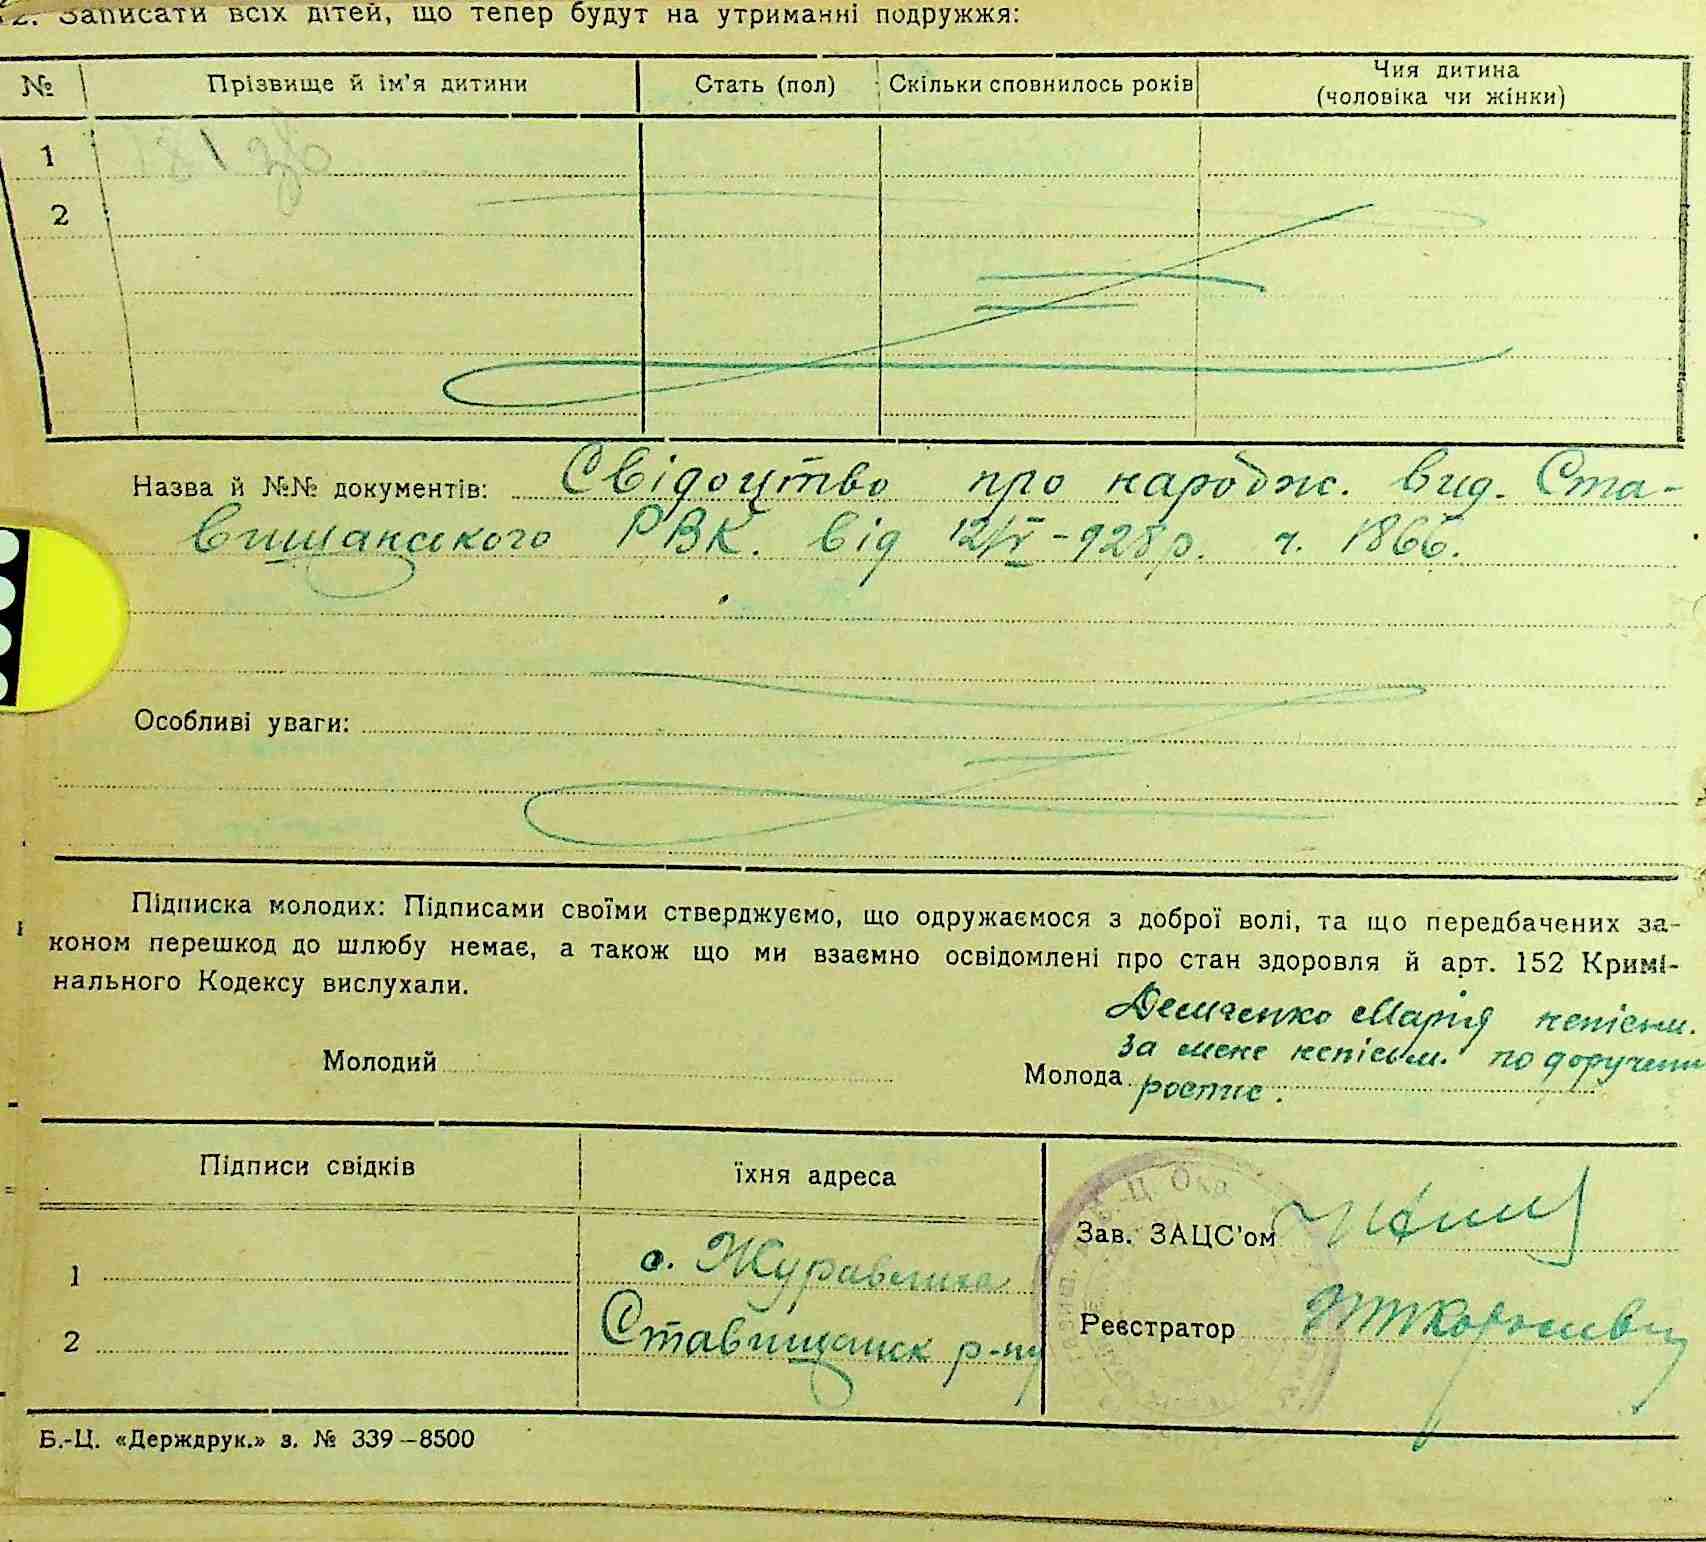 2. Записати всіх дітей, що тепер будут на утриманні подружжя:
№ Прізвище й ім'я дитини Стать (пол) Скільки сповнилось років Чия дитина (чоловіка чи жінки)
1
2
Назва й №№ документів: Свідоцтво про народж. вид. Ста-
вищанського РВК. від 12/IV-928р. ч. 1866.
Особливі уваги:
Підписка молодих: Підписами своїми стверджуємо, що одружаємося з доброї волі, та що передбачених за-
коном перешкод до шлюбу немає, а також що ми взаємно освідомлені про стан здоровля й арт. 152 Кримі-
нального Кодексу вислухали.
Демченко Марія непісьм.
за мене непісьм. по доручени
Молодий Молода роспис.
Підписи свідків їхня адреса
Зав. ЗАЦС'ом
1 с. Журавлиха
Реєстратор
2 Ставищанск р-ну
Б.-Ц. «Держдрук.» з. № 339–8500